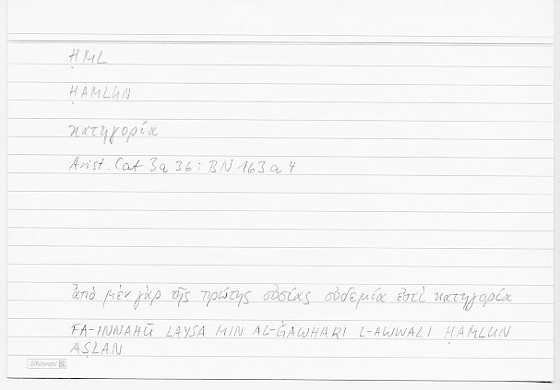 ḤML
ḤAMLUN
κατηγορία
Arist. Cat 3a 36 : BN 163a 4
ἀπὸ μὲν γὰρ τῆς πρώτης οὐσίας οὐδεμία ἐστὶ κατηγορία
FA-INNAHŪ LAYSA MIN AL-ǦAWHARI L-AWWALI ḤAMLUN
AṢLAN
BRUNNEN